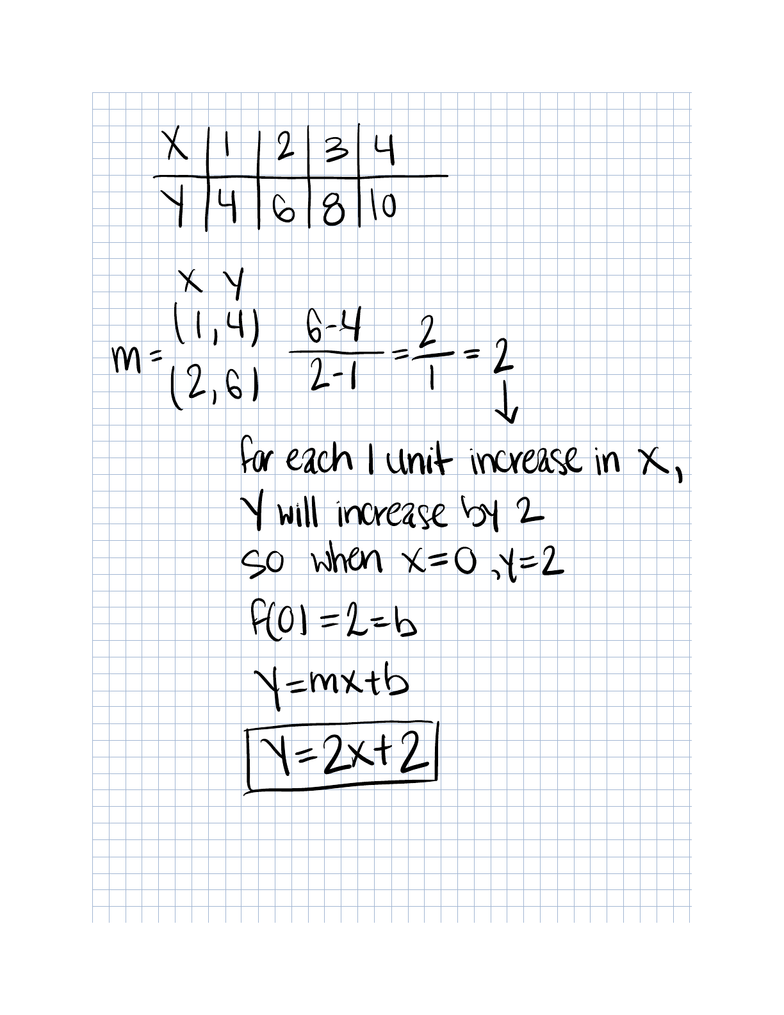 X | 1 | 2 | 3 | 4
Y | 4 | 6 | 8 | 10
X Y
m = (1,4) (2,6) 6-4/2-1 = 2/1 = 2
↓
for each 1 unit increase in X,
Y will increase by 2
so when x=0, y=2
f(0) = 2 = b
Y=mx+b
Y=2x+2